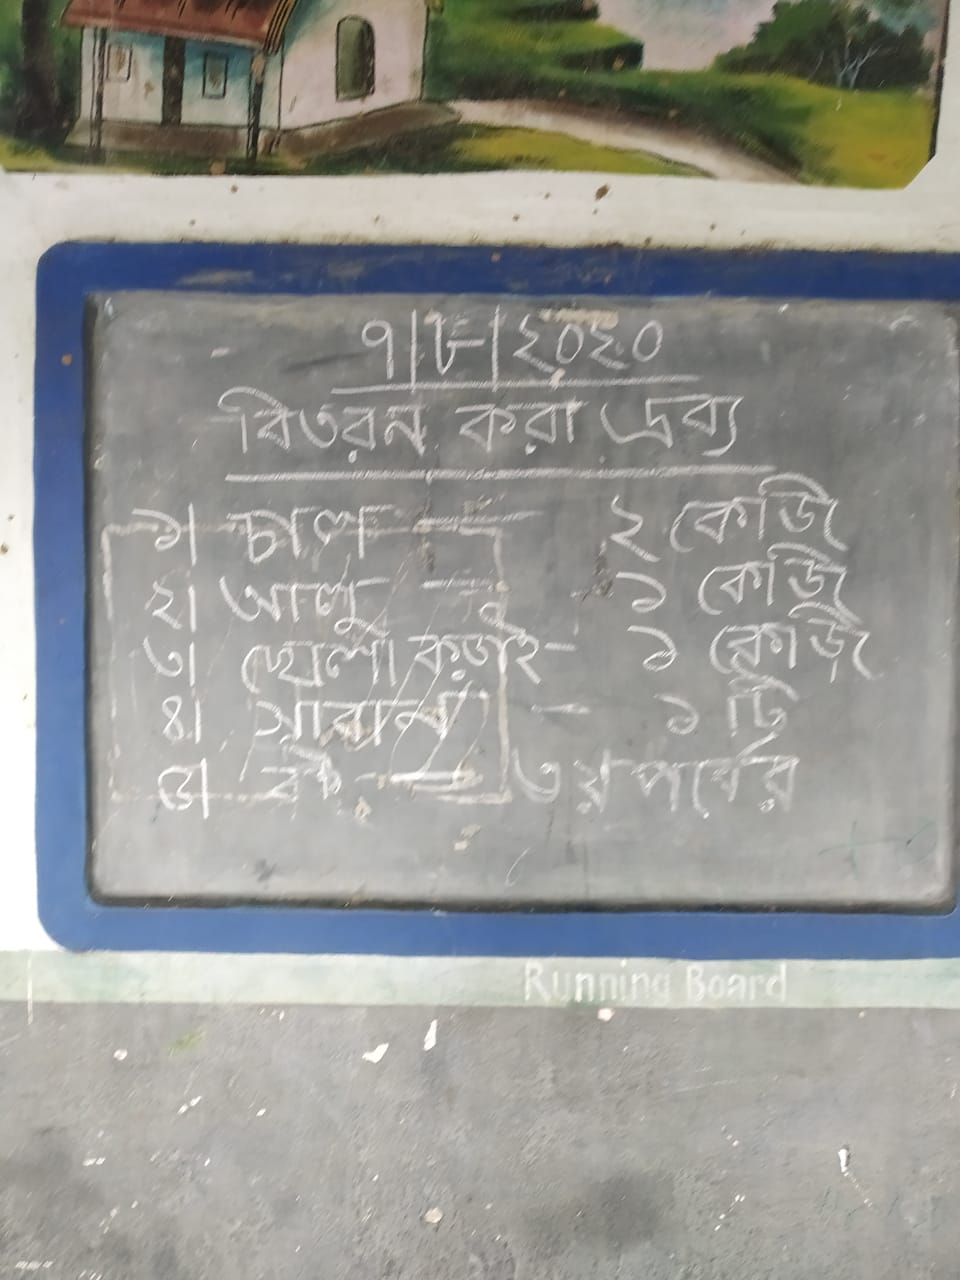 ৭|৮|২০২০
বিতরন করা দ্রব্য
১| চাল — ২ কেজি
২| আলু — ১ কেজি
৩| খেশা কড়াই - ১ কেজি
৪| সাবান - ১ টি
৫| বই — ৩য় পর্বের
Running Board